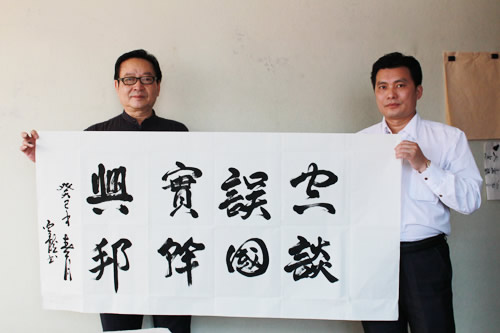 空談
誤國
實幹
興邦
癸巳年春月